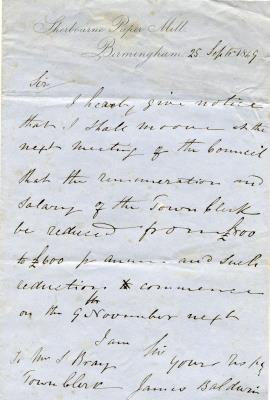 Sherbourne Paper Mill.
Birmingham. 25 Sept 1849
Sir
I hereby give notice
that I shall moove at the
next meeting of the Council
that the remuneration and
salary of the Town Clerk
be reduced from £800
to £600 p annum and such
reduction to commence
on the 9th November next
I am Sir
To Mr S Bray yours
Town Clerk James Baldwin